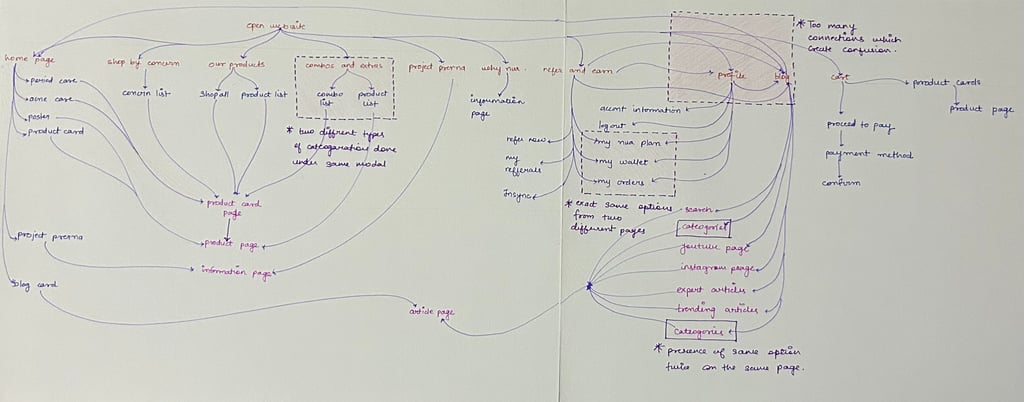 open website
* Too many
connections which
create confusion.
home page
shop by concern
our products
combos and extras
project prerna
why nua.
refer and earn
profile
blog
cart
period care
acne care
poster
product card
concern list
shop all
product list
combo
list
product
list
information
page
product cards
product page
* two diffrent types
of categoration done
under same modal
acount information
logout
refer now
my
referrals
Insync
my nua plan
my wallet
my orders
proceed to pay
payment method
confirm
* exact same options
from two
different pages
product card
page
product page
information page
project prerna
blog card
article page
search
categories
youtube page
instagram page
expert articles
trending articles
categories
* presence of same option
twice on the same page.